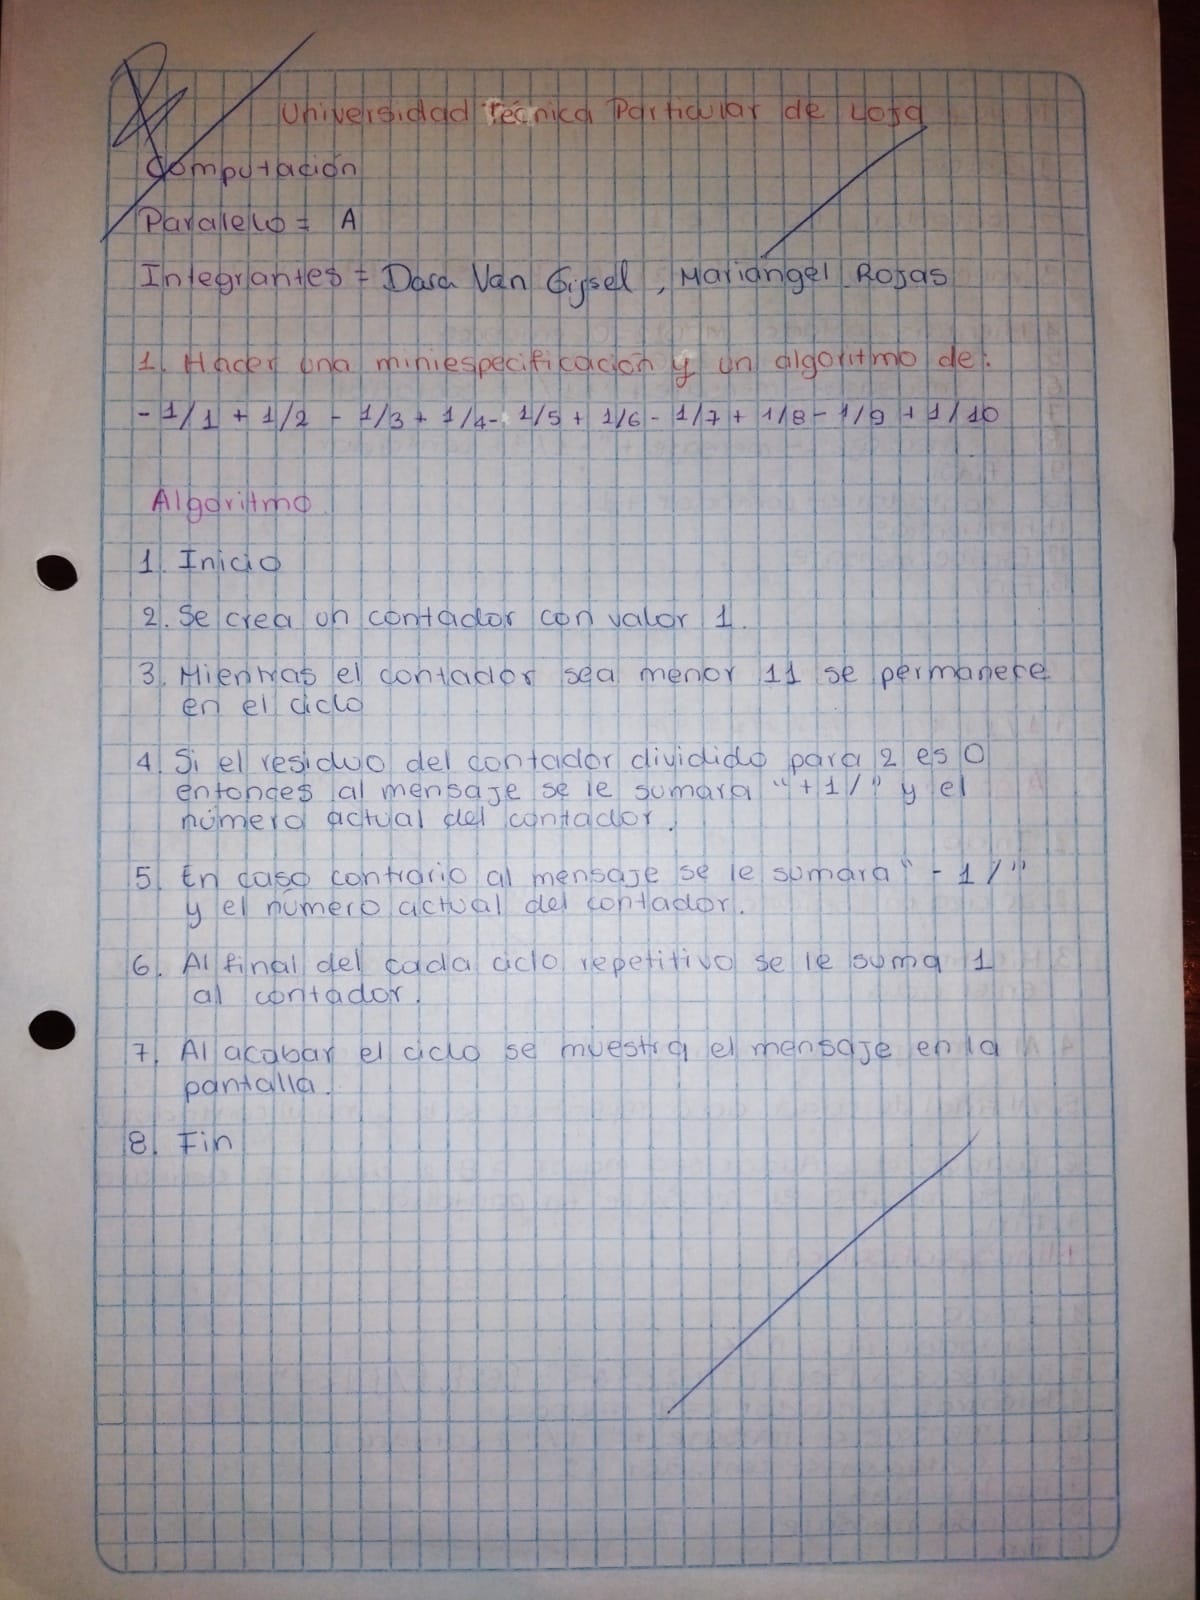 Universidad Técnica Particular de Loja
Computación
Paralelo = A
Integrantes = Dara Van Gijsel, Mariangel Rojas
1. Hacer una miniespecificación y un algoritmo de:
- 1/1 + 1/2 - 1/3 + 1/4 - 1/5 + 1/6 - 1/7 + 1/8 - 1/9 + 1/10
Algoritmo
1. Inicio
2. Se crea un contador con valor 1.
3. Mientras el contador sea menor 11 se permanece
en el ciclo
4. Si el residuo del contador dividido para 2 es 0
entonces al mensaje se le sumara "+1/" y el
número actual del contador.
5. En caso contrario al mensaje se le sumara "-1/"
y el número actual del contador.
6. Al final del cada ciclo repetitivo se le suma 1
al contador.
7. Al acabar el ciclo se muestra el mensaje en la
pantalla.
8. Fin